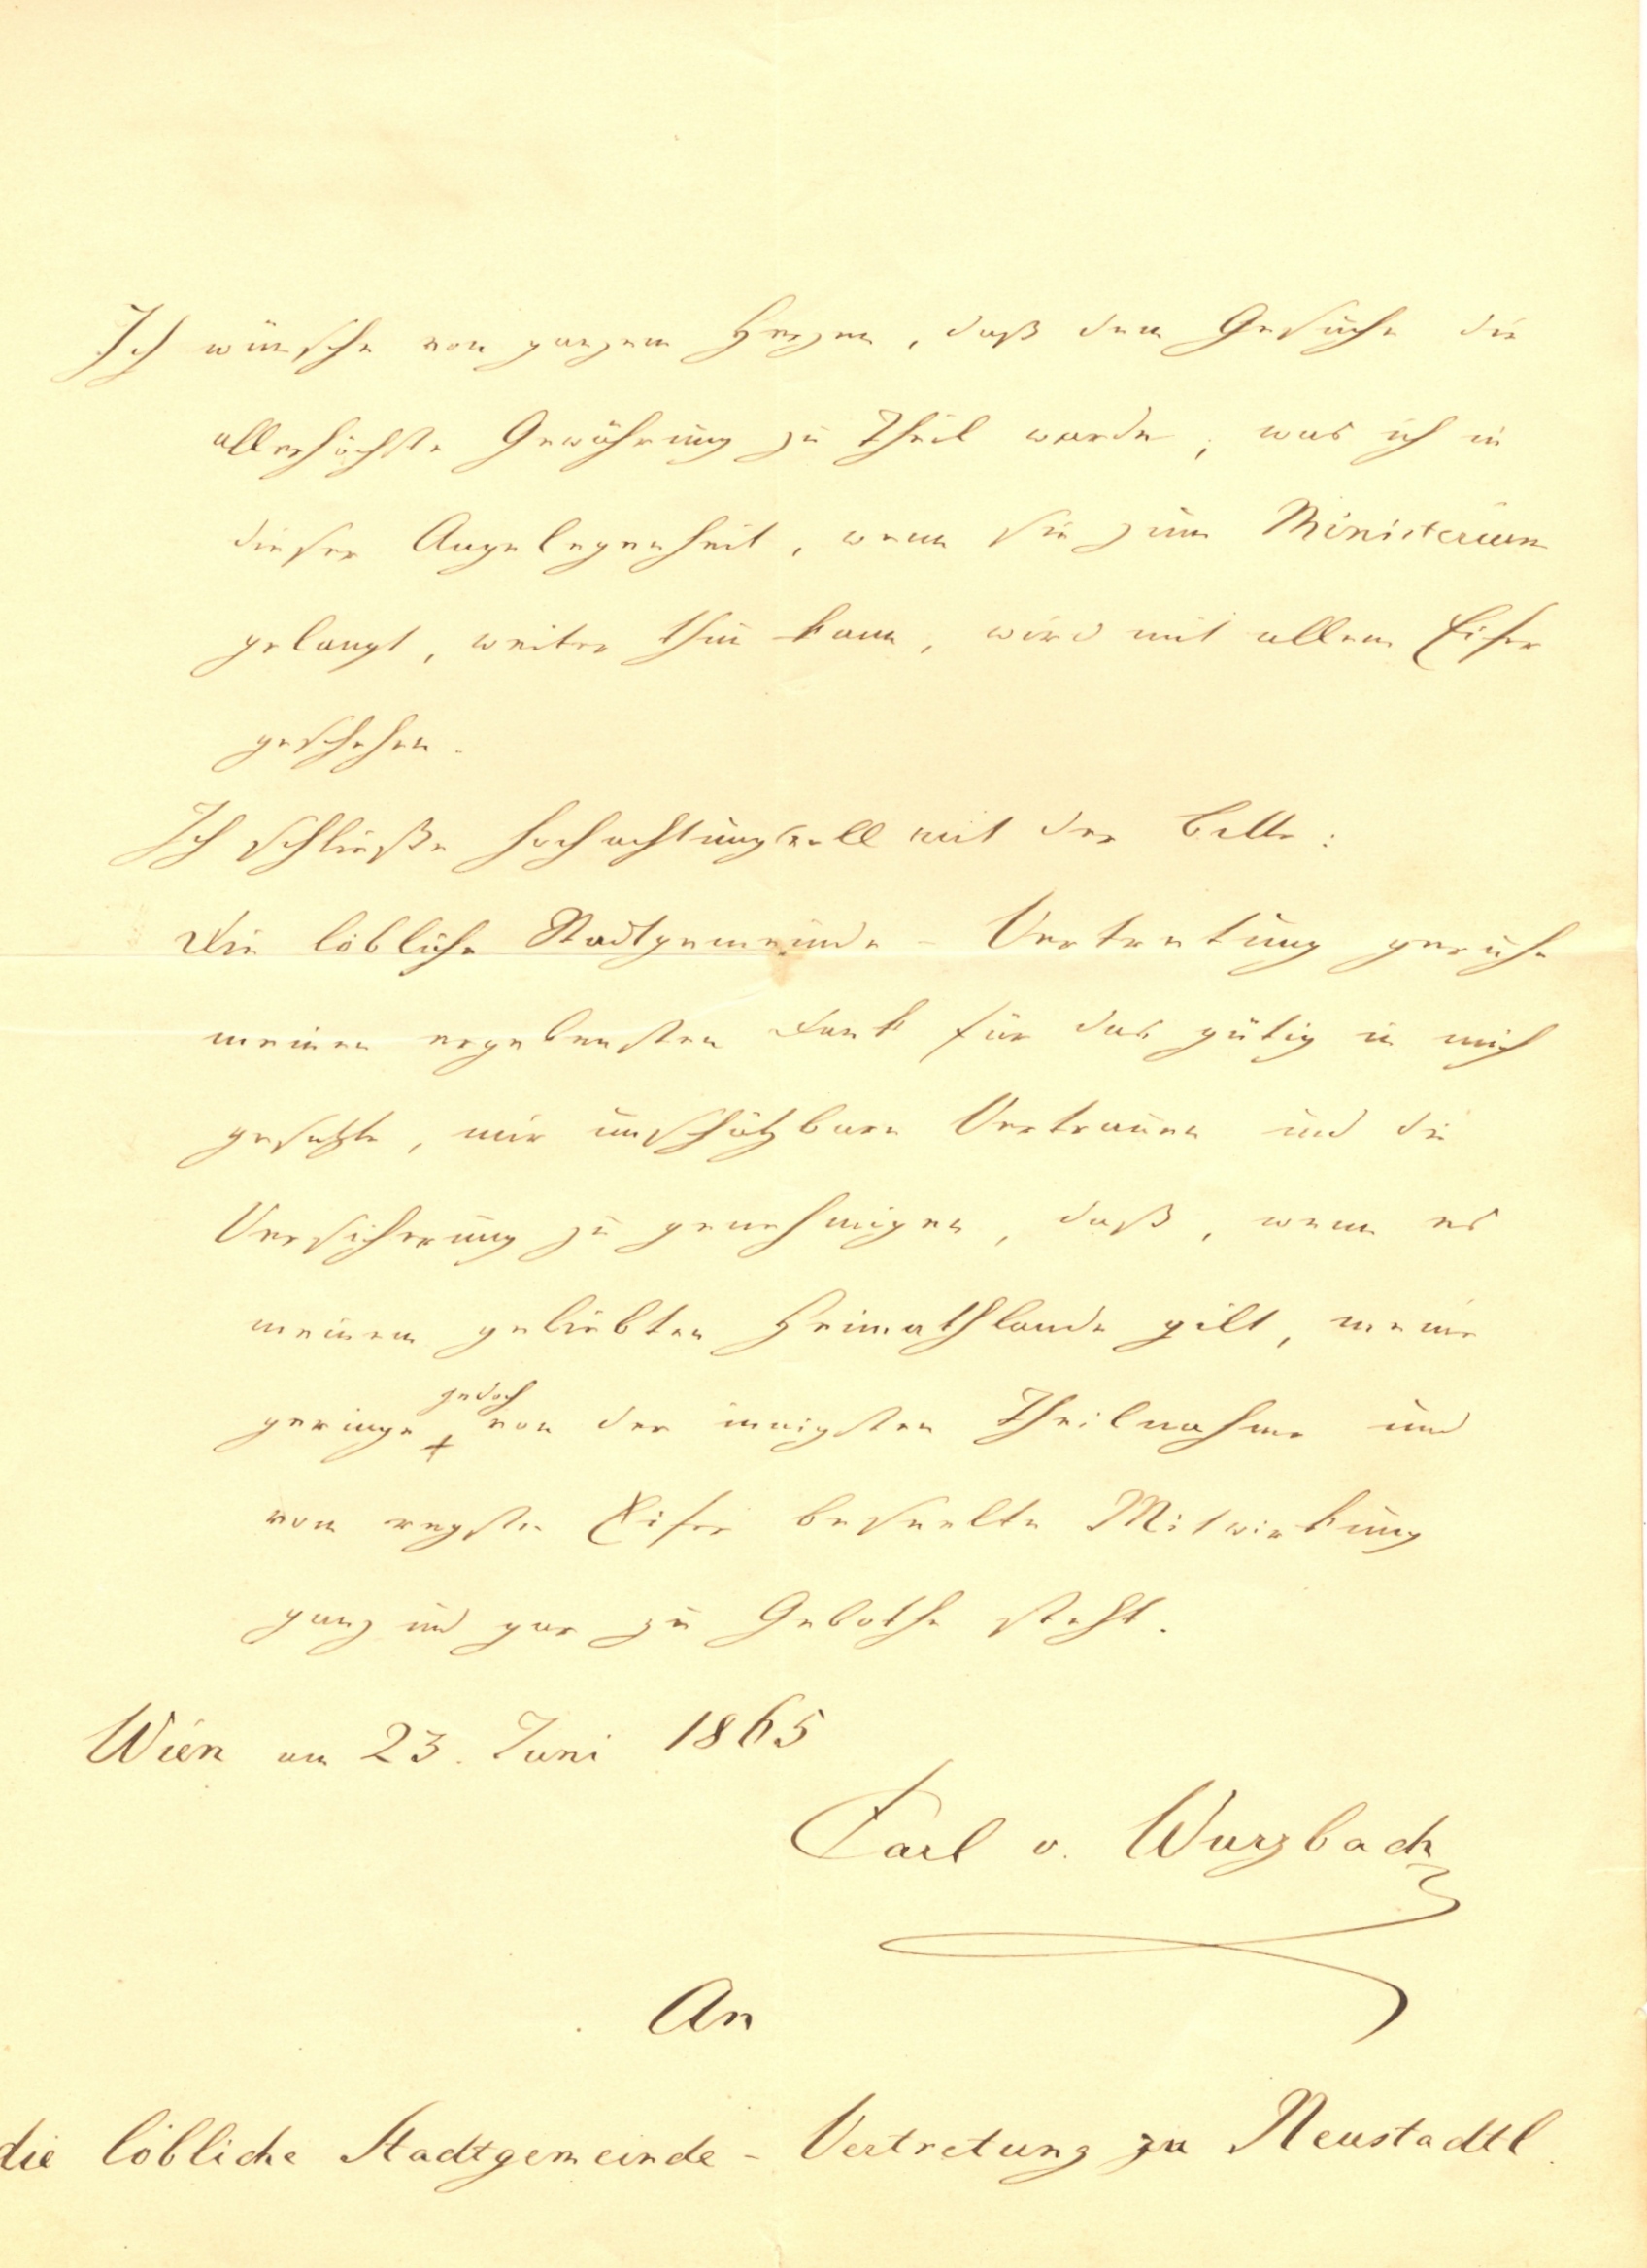 Ich wünsche von ganzem Herzen, daß dem Gesuche die
allerhöchste Gewährung zu Theil werde; was ich in
dieser Angelegenheit, wenn sie zum Ministerium
gelangt, weiter thun kann, wird mit allem Eifer
geschehen.
Ich schließe hochachtungsvoll mit der Bitte:
Die löbliche Stadtgemeinde-Vertretung geruhe
meinen ergebensten Dank für das gütig in mich
gesetzte, mir unschätzbare Vertrauen und die
Versicherung zu genehmigen, daß, wenn es
meinem geliebten Heimathlande gilt, meine
jedoch
geringe, von der innigsten Theilnahme und
vom regsten Eifer beseelte Mitwirkung
ganz und gar zu Gebothe steht.
Wien am 23. Juni 1865
Carl v. Wurzbach
An
die löbliche Stadtgemeinde-Vertretung zu Neustadtl.